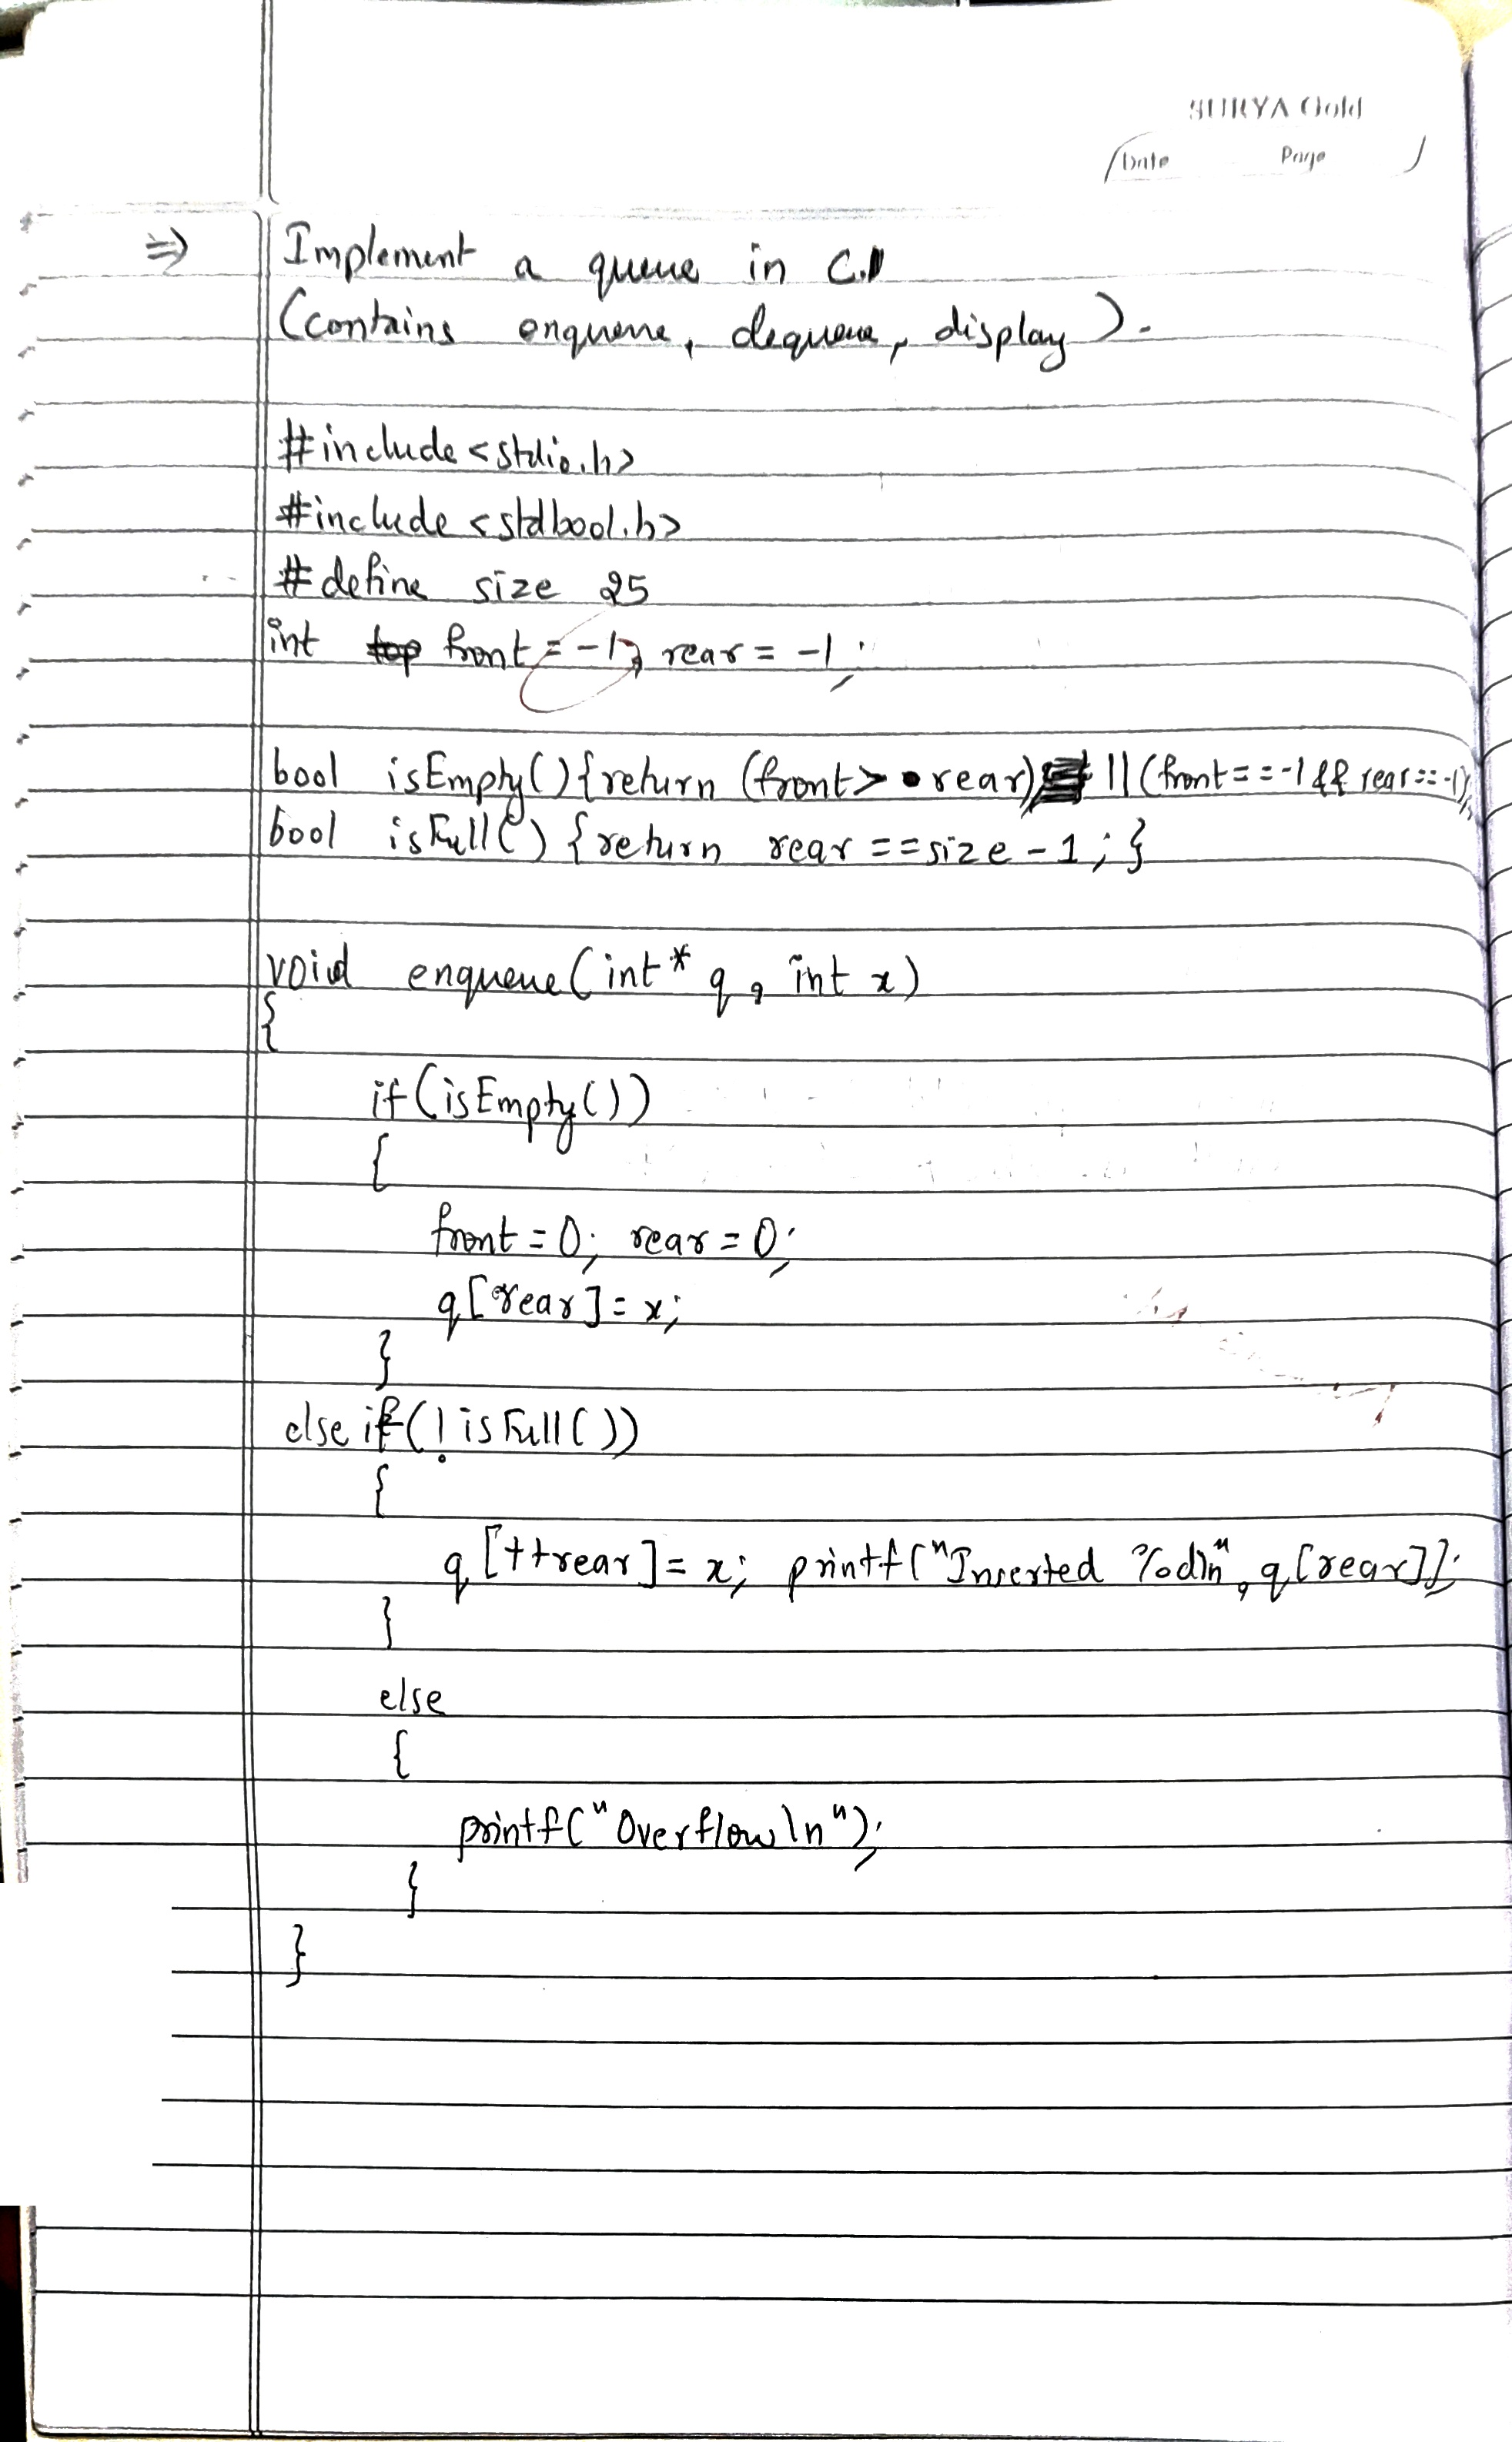 SURYA Gold
Date Page
⇒ Implement a queue in C.
(contains enqueue, dequeue, display).
#include <stdio.h>
#include <stdbool.h>
#define size 25
int top front = -1, rear = -1;
bool isEmpty(){return (front> rear) || (front==-1 && rear==-1);
bool isFull() {return rear ==size-1;}
void enqueue(int* q, int x)
{
if(isEmpty())
{
front = 0; rear = 0;
q[rear] = x;
}
else if(!isFull())
{
q[++rear] = x; printf("Inserted %d\n", q[rear]);
}
else
{
printf("Overflow\n");
}
}